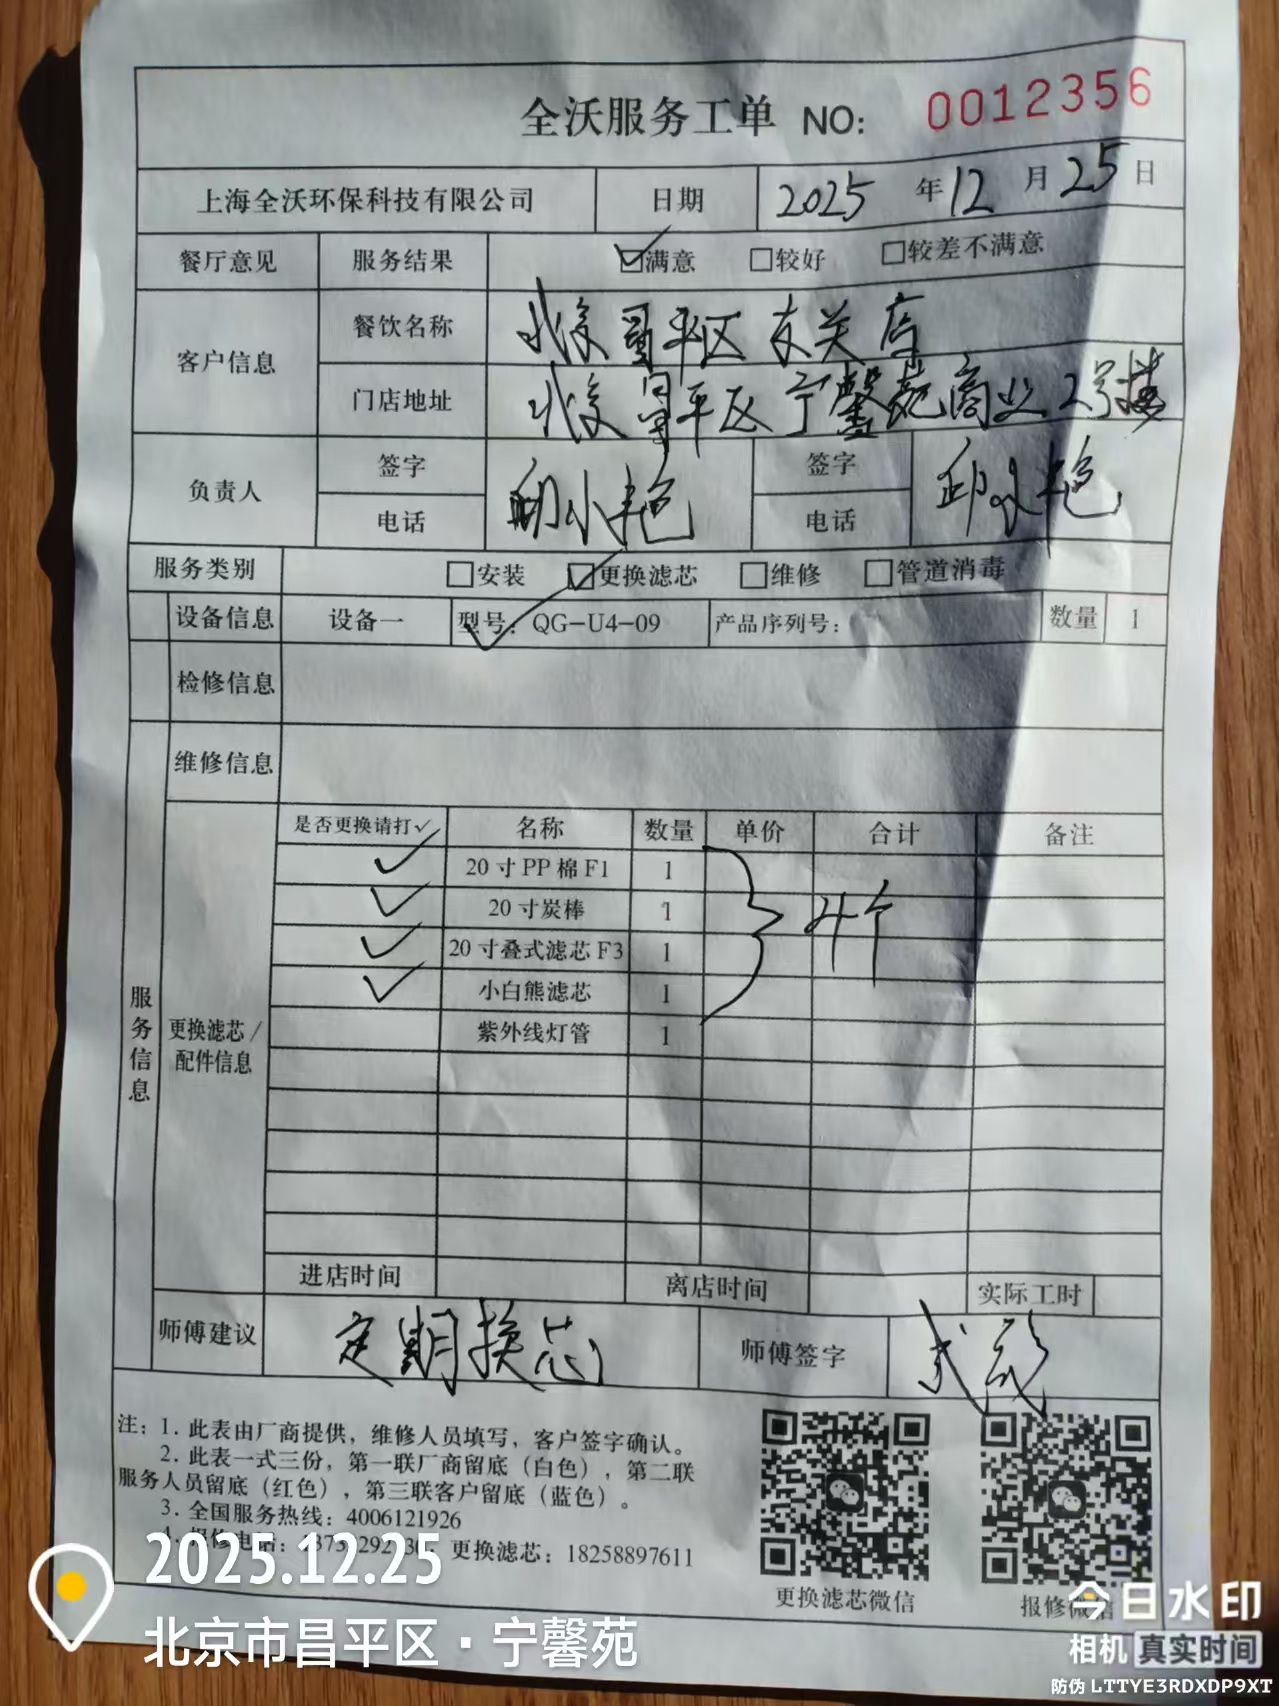 全沃服务工单 NO: 0012356
上海全沃环保科技有限公司 日期 2025 年 12 月 25 日
餐厅意见 服务结果 ☑满意 □较好 □较差不满意
客户信息 餐饮名称 北京昌平区 友关店
门店地址 北京昌平区宁馨苑商业2号楼
负责人 签字 电话 邱小艳 签字 电话 邱小艳
服务类别 □安装 ☑更换滤芯 □维修 □管道消毒
设备信息 设备一 型号: QG-U4-09 产品序列号: 数量 1
检修信息
维修信息
服务信息
更换滤芯/配件信息
是否更换请打✓ 名称 数量 单价 合计 备注
✓ 20寸PP棉F1 1
✓ 20寸炭棒 1 4个
✓ 20寸叠式滤芯F3 1
✓ 小白熊滤芯 1
紫外线灯管 1
进店时间 离店时间 实际工时
师傅建议 定期换芯 师傅签字
注: 1. 此表由厂商提供, 维修人员填写, 客户签字确认。
2. 此表一式三份, 第一联厂商留底 (白色), 第二联
服务人员留底 (红色), 第三联客户留底 (蓝色)。
3. 全国服务热线: 4006121926
4. 报修电话: 更换滤芯: 18258897611
更换滤芯微信 报修微信
2025.12.25
北京市昌平区·宁馨苑
今日水印
相机 真实时间
防伪 LTTYE3RDXDP9XT